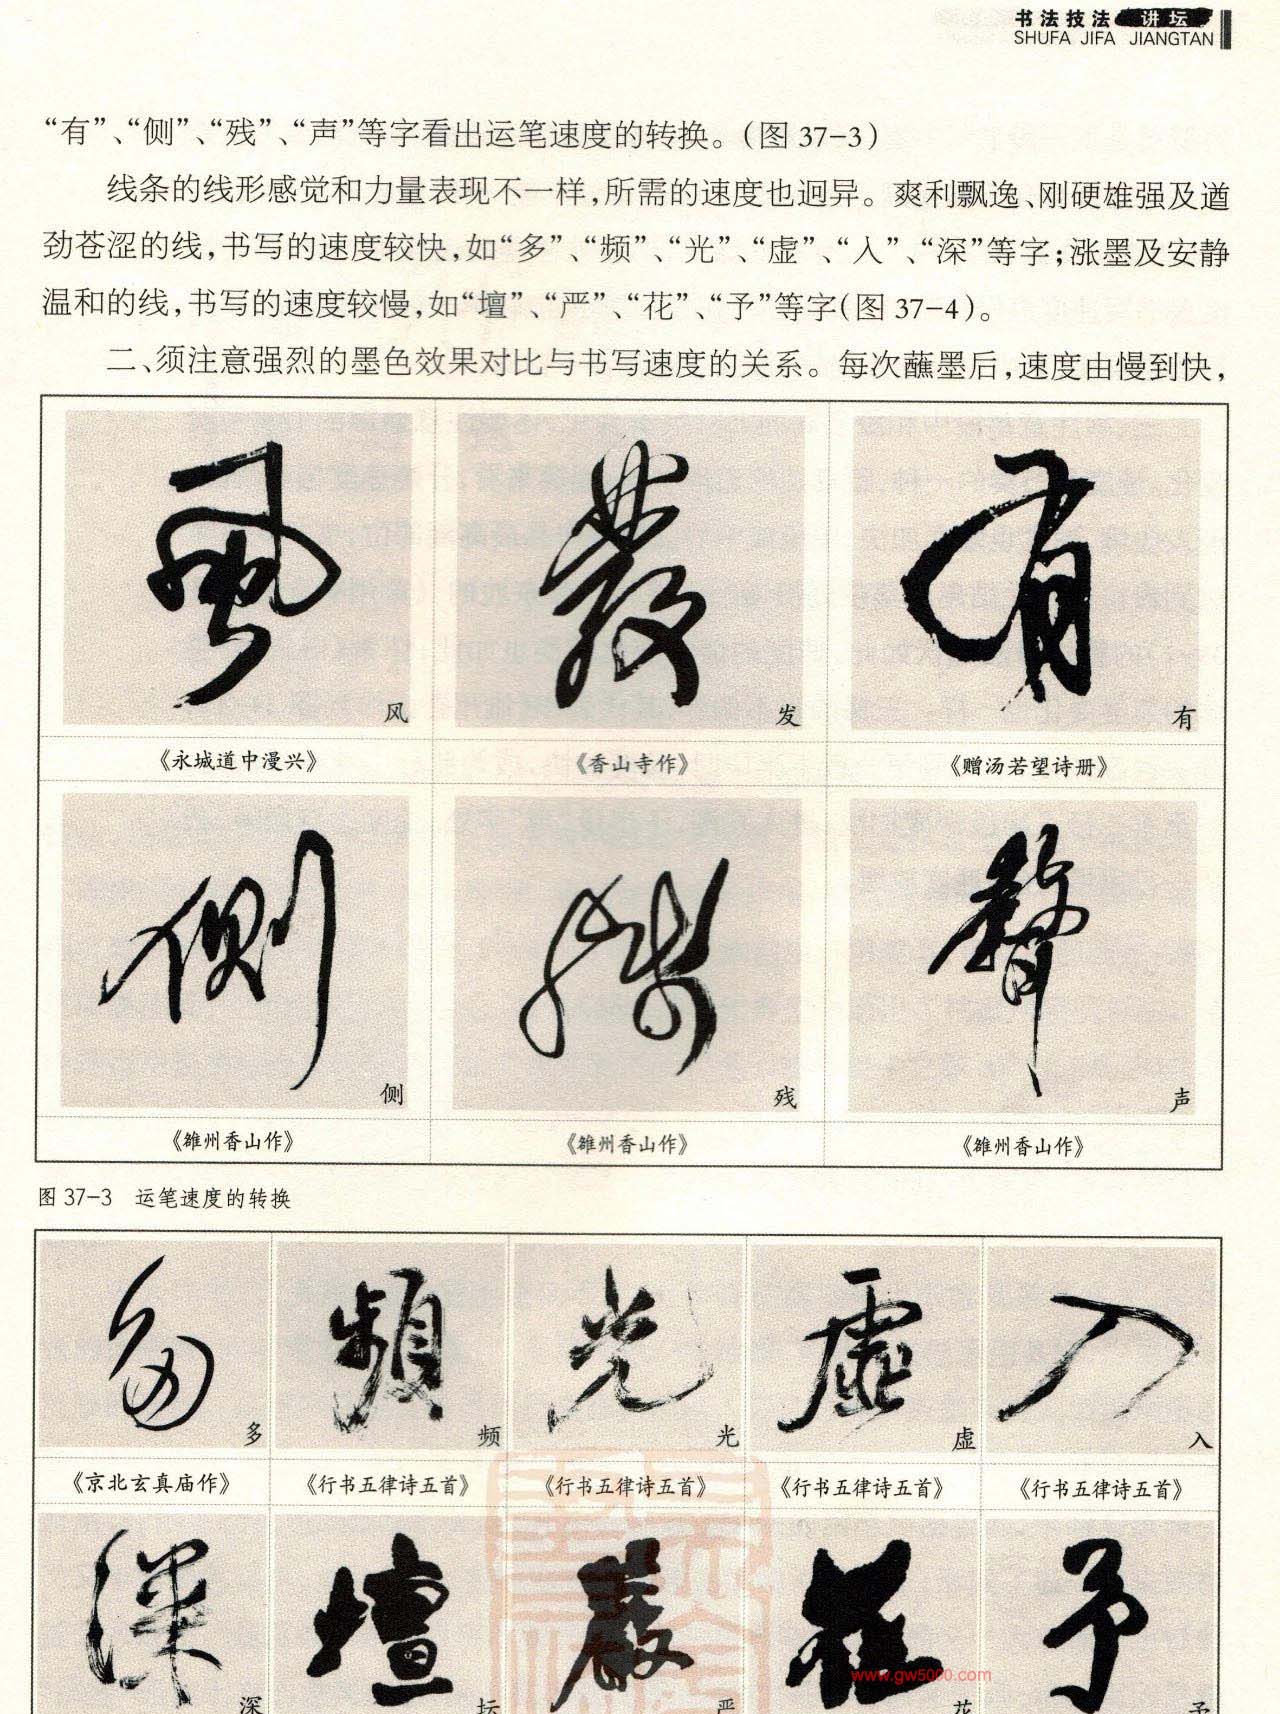 书法技法 讲坛
SHUFA JIFA JIANGTAN
“有”、“侧”、“残”、“声”等字看出运笔速度的转换。(图 37-3)
线条的线形感觉和力量表现不一样,所需的速度也迥异。爽利飘逸、刚硬雄强及遒
劲苍涩的线,书写的速度较快,如“多”、“频”、“光”、“虚”、“入”、“深”等字;涨墨及安静
温和的线,书写的速度较慢,如“壇”、“严”、“花”、“予”等字(图 37-4)。
二、须注意强烈的墨色效果对比与书写速度的关系。每次蘸墨后,速度由慢到快,
風 發 有
风 发 有
《永城道中漫兴》 《香山寺作》 《赠汤若望诗册》
側 殘 聲
侧 残 声
《雒州香山作》 《雒州香山作》 《雒州香山作》
图 37-3 运笔速度的转换
多 頻 光 虛 入
多 频 光 虚 入
《京北玄真庙作》 《行书五律诗五首》 《行书五律诗五首》 《行书五律诗五首》 《行书五律诗五首》
深 壇 嚴 花 予
深 坛 严 花 予
www.gw5000.com